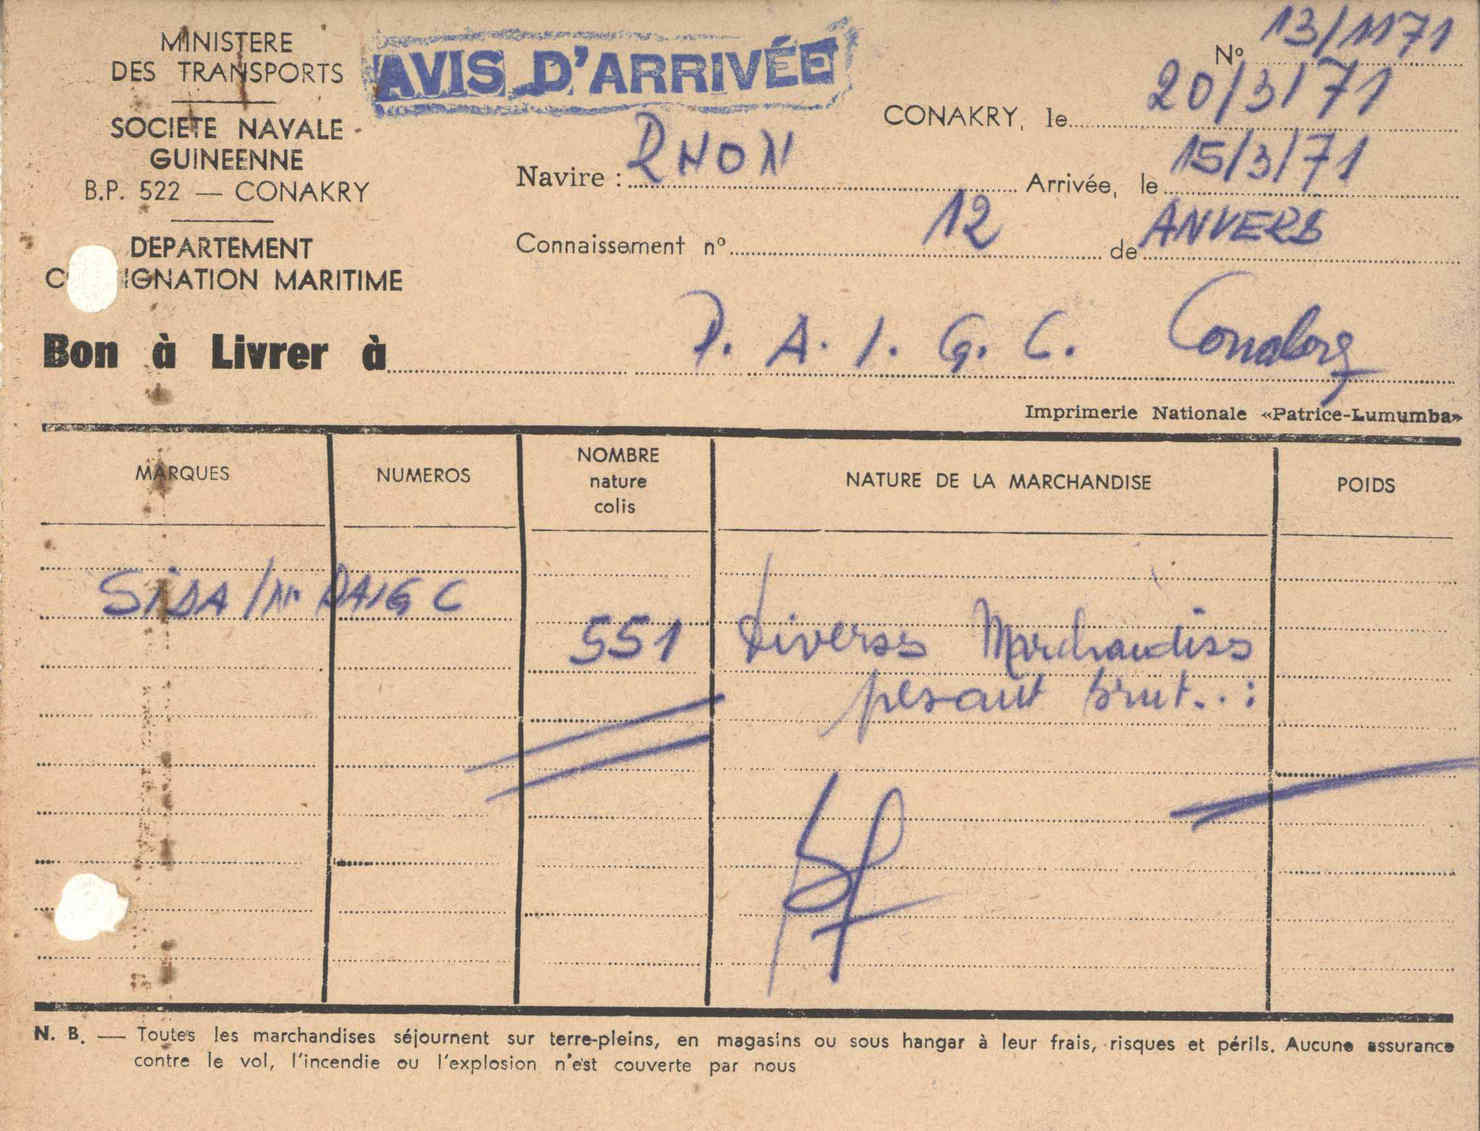 MINISTERE
DES TRANSPORTS
SOCIETE NAVALE
GUINEENNE
B.P. 522 — CONAKRY
DEPARTEMENT
C IGNATION MARITIME
AVIS D'ARRIVÉE
N° 13/1171
CONAKRY, le 20/3/71
Navire : RHON Arrivée, le 15/3/71
Connaissement n° 12 de ANVERS
Bon à Livrer à P. A. I. G. C. Conakry
Imprimerie Nationale «Patrice-Lumumba»
MARQUES NUMEROS NOMBRE nature colis NATURE DE LA MARCHANDISE POIDS
SiDA / PAIGC
551 diverses Marchandises
pesant brut..:
N. B. — Toutes les marchandises séjournent sur terre-pleins, en magasins ou sous hangar à leur frais, risques et périls. Aucune assurance
contre le vol, l'incendie ou l'explosion n'est couverte par nous